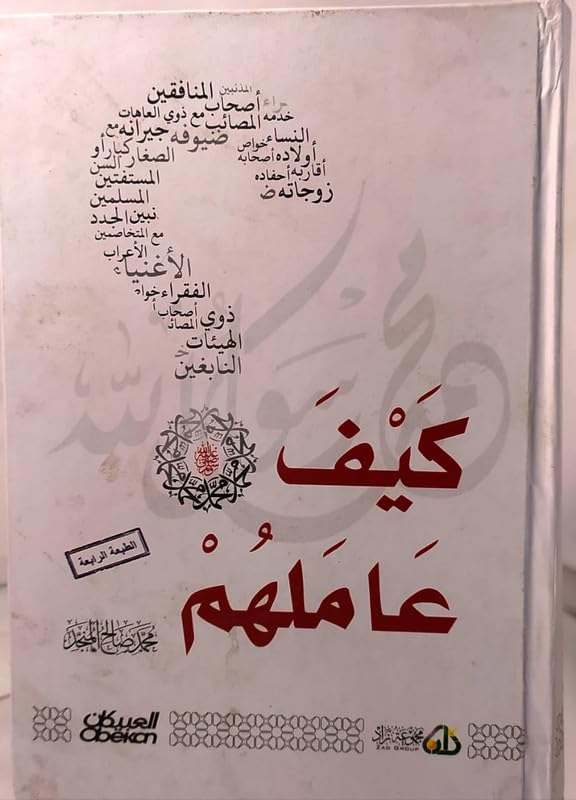 المذنبين المنافقين
أصحاب
خدمه المصائب مع ذوي العاهات
ضيوفه جيرانه مع
النساء خواص الصغار كبار أو
أولاده أصحابه السن
أقاربه أحفاده المستفتين
زوجاته المسلمين
الجدد
مع المتخاصمين
الأعراب
الأغنياء
الفقراء
أصحاب
ذوي المصائب
الهيئات
النابغين
محمد رسول الله
كَيْفَ
عَامَلَهُمْ
الطبعة الرابعة
محمد صالح المنجد
العبيكان
Obëkon
مجموعة زاد
ZAD GROUP
زاد